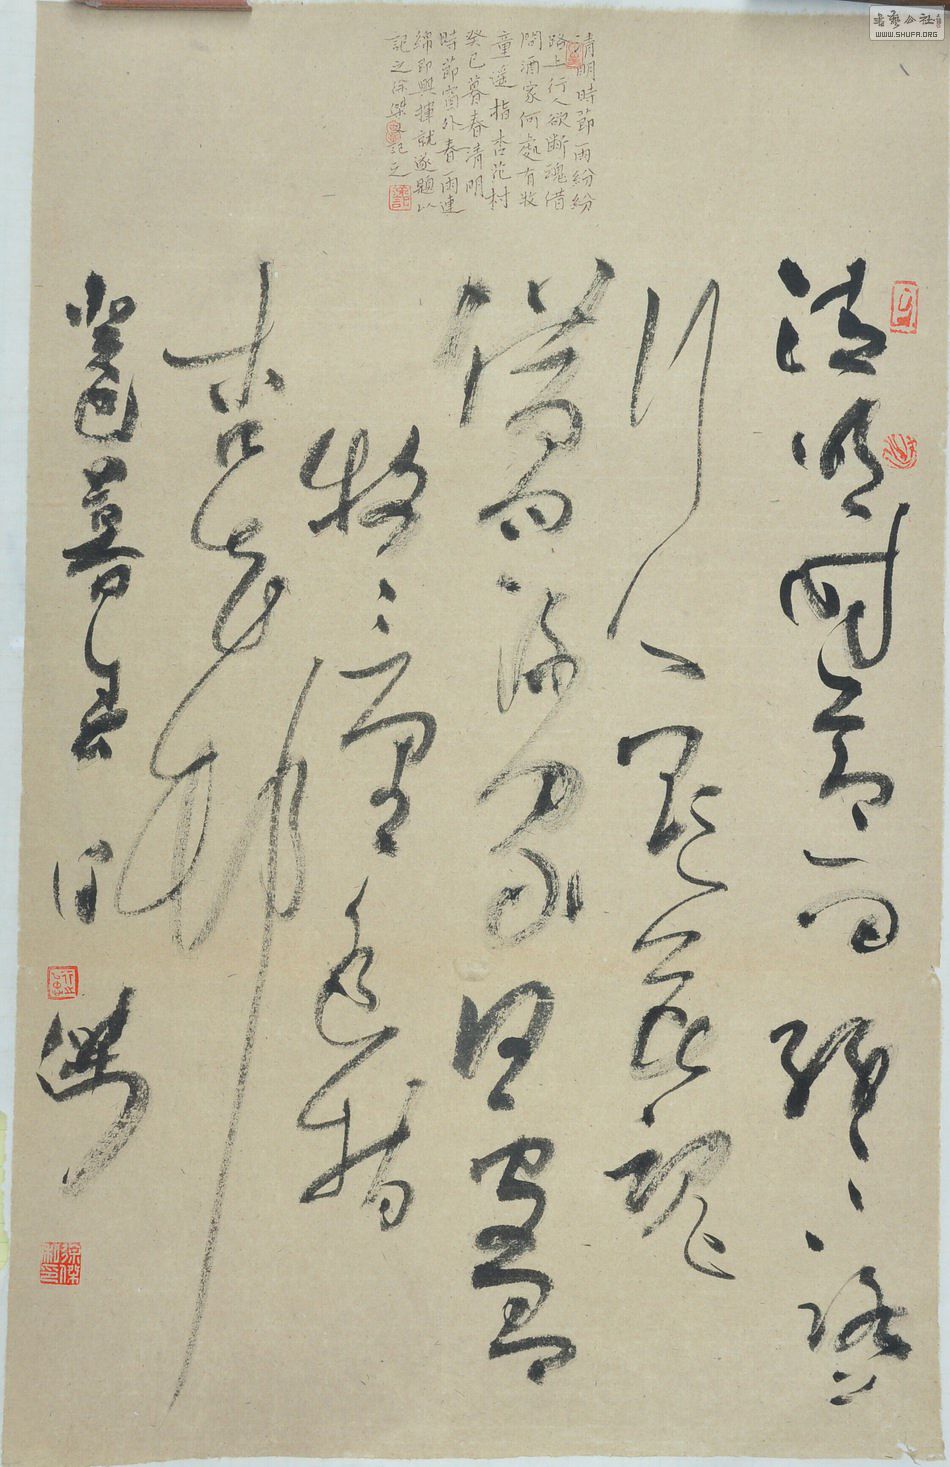 清明時節雨紛紛
路上行人欲斷魂借
問酒家何處有牧
童遥指杏花村
癸巳暮春清明
時節窗外春雨連
綿即興揮就遂題以
記之徐傑又記之
清明時節雨紛〻路上
行人欲斷魂
借問酒家何處有
牧童遥指
杏花村
癸巳暮春
傑
書藝公社
WWW.SHUFA.ORG